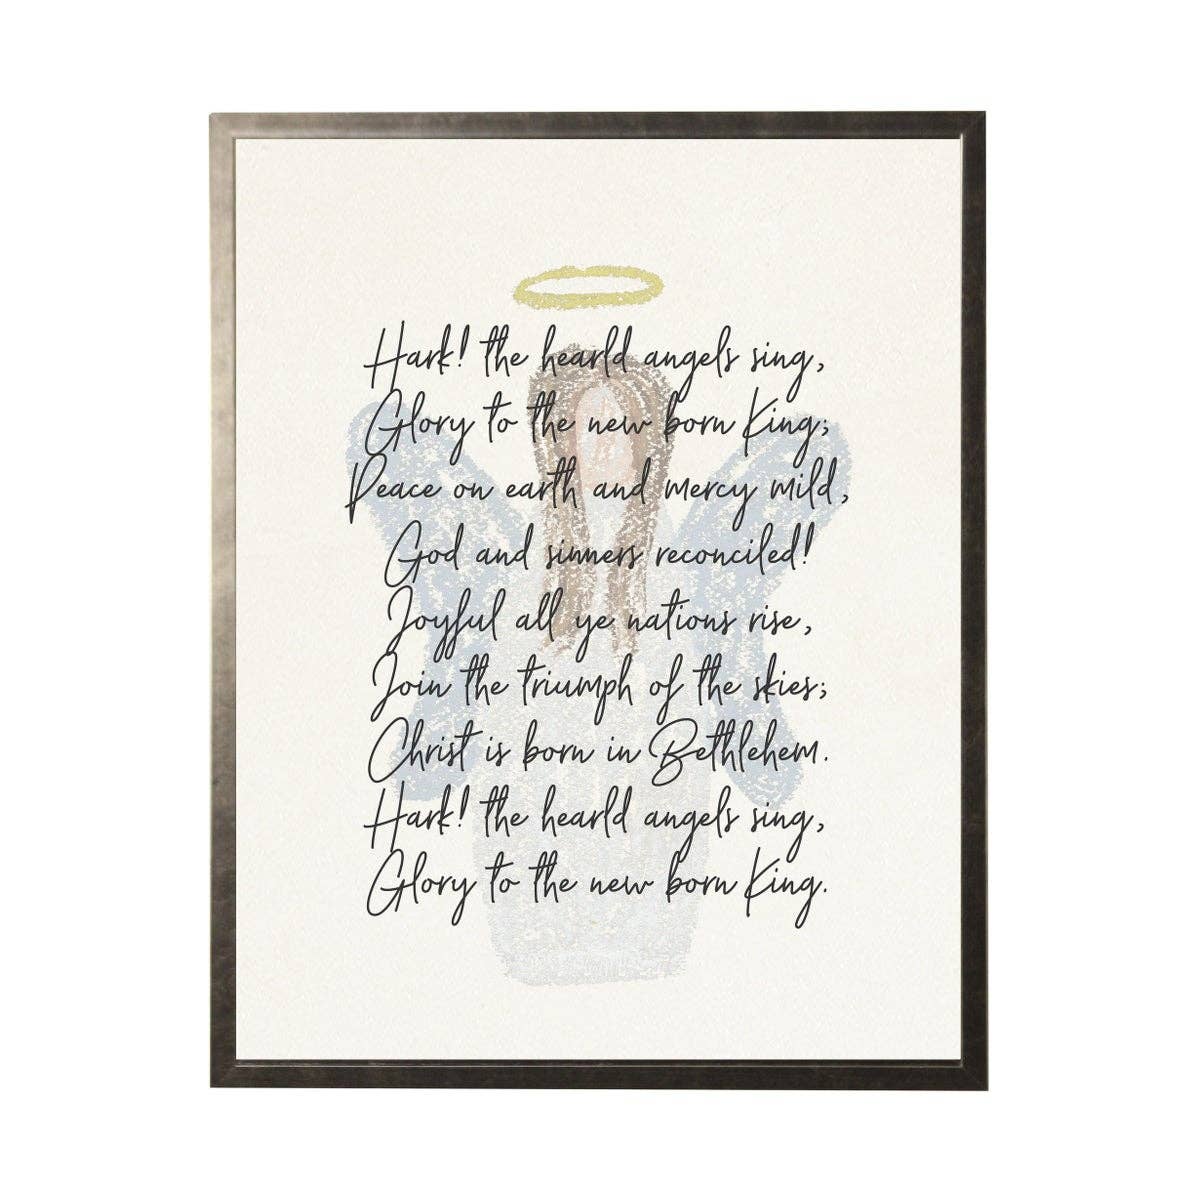 Hark! the hearld angels sing,
Glory to the new born King;
Peace on earth and mercy mild,
God and sinners reconciled!
Joyful all ye nations rise,
Join the triumph of the skies;
Christ is born in Bethlehem.
Hark! the hearld angels sing,
Glory to the new born King.